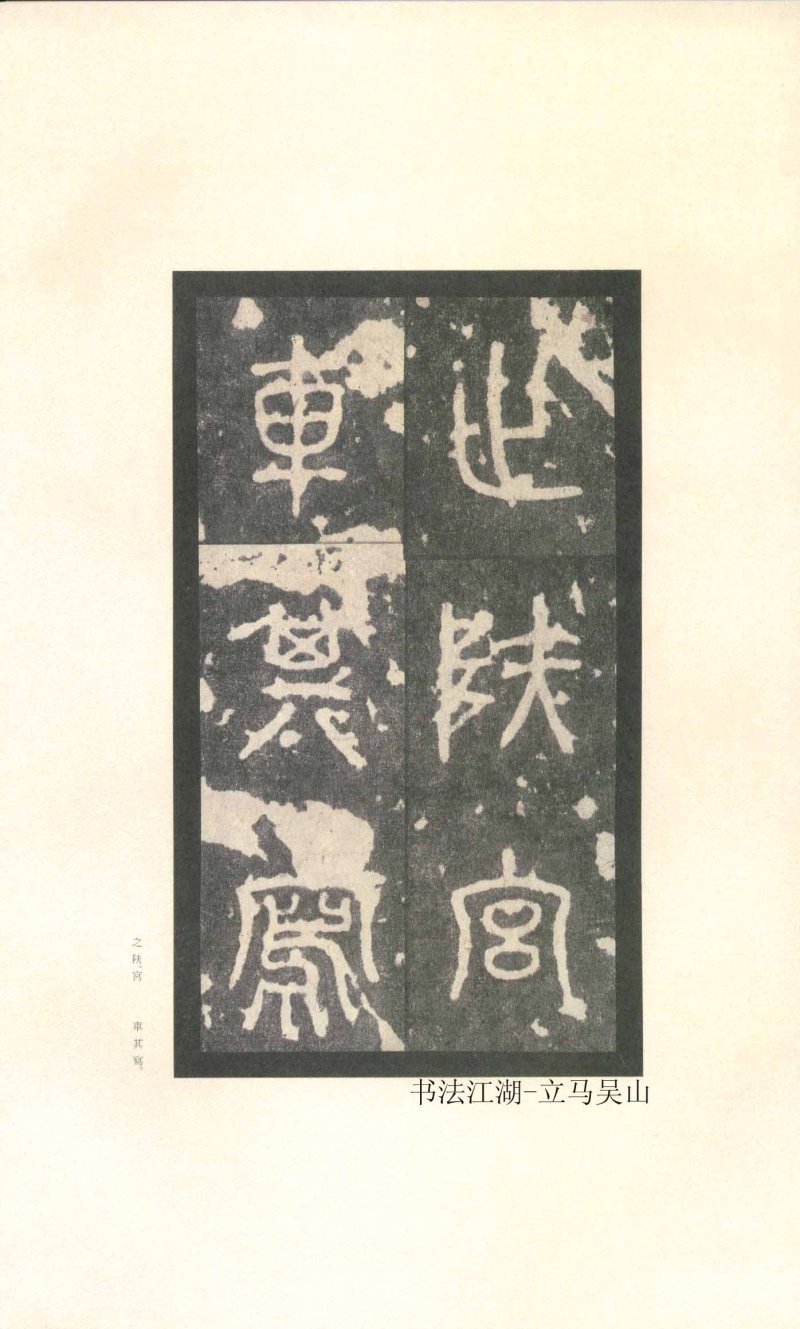 之䟆宮
車其寫
之䟆宮 車其寫。
书法江湖-立马吴山